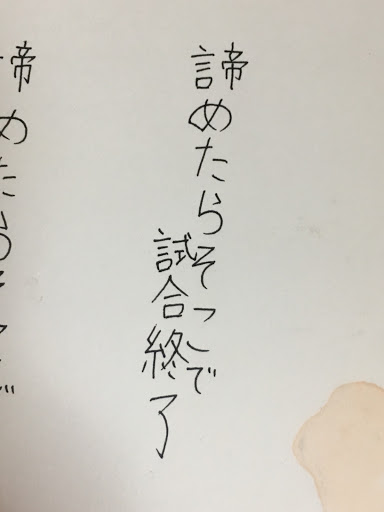 諦めたらそこで
試合終了
諦めたらそこで